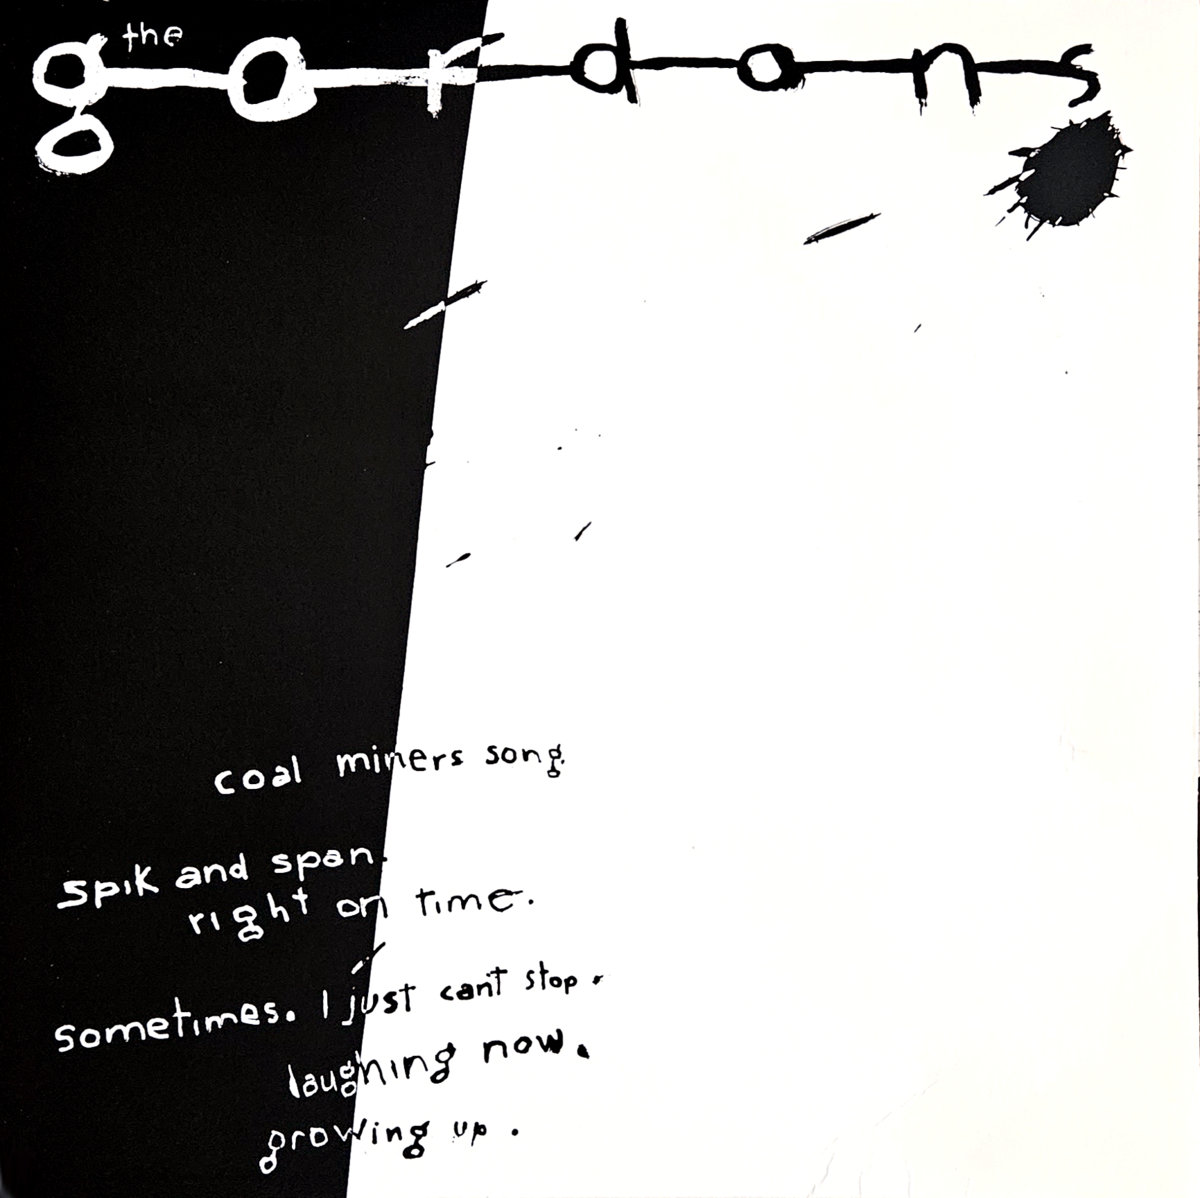 the
gordons
coal miners song
spik and span.
right on time.
sometimes. I just cant stop.
laughing now.
growing up.